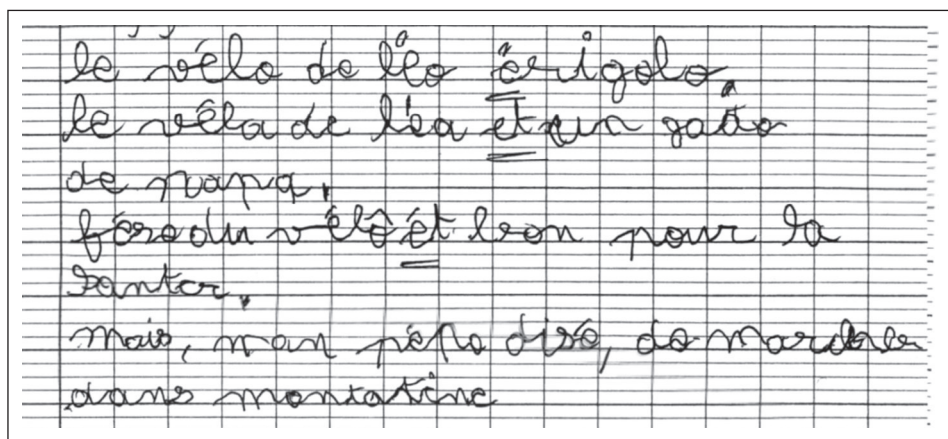 le vélo de léo érigolo,
le véla de léa et un gatto
de papa,
féredu vélô ét bon pour la
santer,
mais, mon pépo disé, de
dans montatine